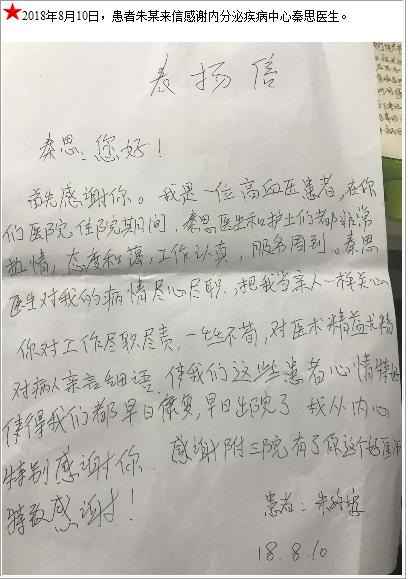 ★2018年8月10日，患者朱某来信感谢内分泌疾病中心秦思医生。
表扬信
秦思：您好！
首先感谢你。我是一位高血压患者，在你
们医院住院期间，秦思医生和护士们都非常
热情，态度和蔼，工作认真，服务周到。秦思
医生对我的病情尽心尽职，把我当亲人一样关心
你对工作尽职尽责，一丝不苟，对医术精益求精
对病人亲言细语，使我们这些患者心情特好
使得我们都早日康复，早日出院了。我从内心
特别感谢你。感谢附三院有了你这个好医师
特致感谢！
患者：朱
18.8.10